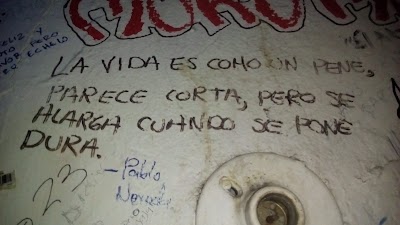 LA VIDA ES COMO UN PENE,
PARECE CORTA, PERO SE
ALARGA CUANDO SE PONE
DURA.
- Pablo
23